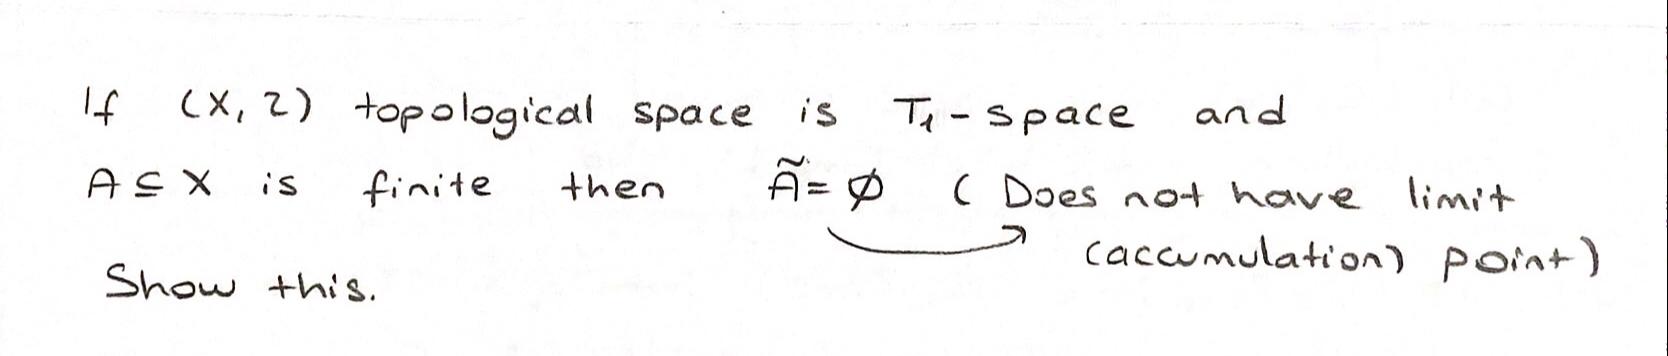 If (X, τ) topological space is T₁-space and
A ⊆ X is finite then Ã = ∅ (Does not have limit
(accumulation) point)
Show this.